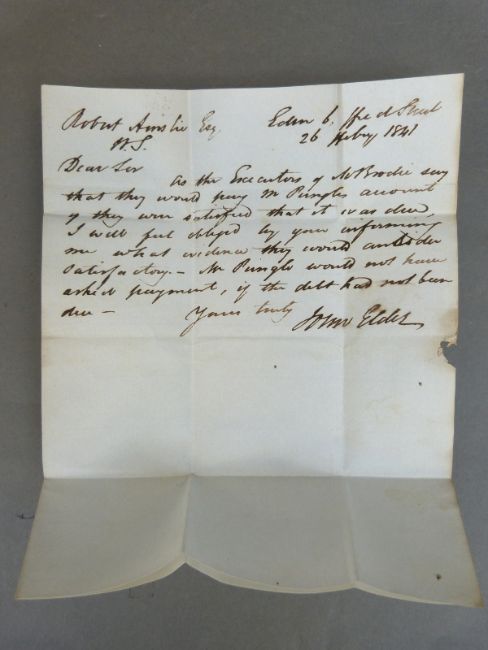 Robert Ainslie Esq. Edinr 6. Street
W.S. 26 Feby 1841
Dear Sir
As the Executors of Mr Brodie say
that they would pay Mr Pringles account
if they were satisfied that it was due,
I will feel obliged by your informing
me what evidence they would consider
satisfactory – Mr Pringle would not have
asked payment, if the debt had not been
due –
Yours truly
John Elder